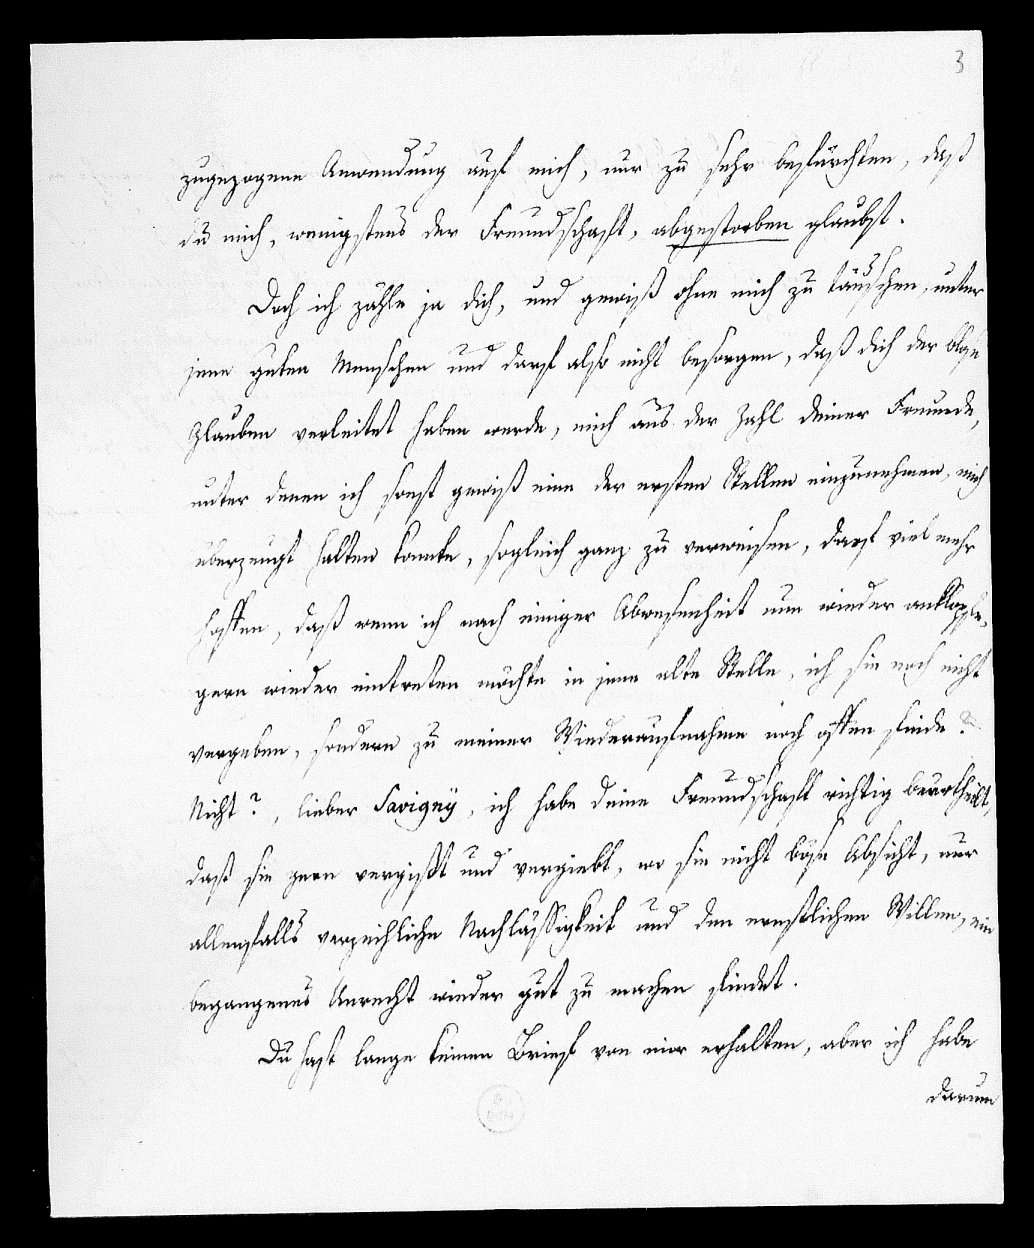 3
zugezogene Anwendung auf mich, nur zu sehr befürchten, daß
du mich, wenigstens der Freundschaft, abgestorben glaubst.
Doch ich zähle ja dich, und gewiß ohne mich zu täuschen, unter
jene guten Menschen und darf also nicht besorgen, daß dich der bloße
Glauben verleitet haben werde, mich aus der Zahl deiner Freunde,
unter denen ich sonst gewiß eine der ersten Stellen einzunehmen, mich
überzeugt halten konnte, sogleich ganz zu verweisen, darf viel mehr
hoffen, daß wenn ich nach einiger Abwesenheit nun wieder anklopfe,
gern wieder eintreten möchte in jene alte Stelle, ich sie noch nicht
vergeben, sondern zu meiner Wiederaufnahme noch offen finde?
Nicht?, lieber Savigny, ich habe deine Freundschaft richtig beurtheilt,
daß sie gern vergißt und vergiebt, wo sie nicht böse Absicht, nur
allenfalls verzeihliche Nachlässigkeit und den ernstlichen Willen, ein
begangenes Unrecht wieder gut zu machen findet.
Du hast lange keinen Brief von mir erhalten, aber ich habe
darum